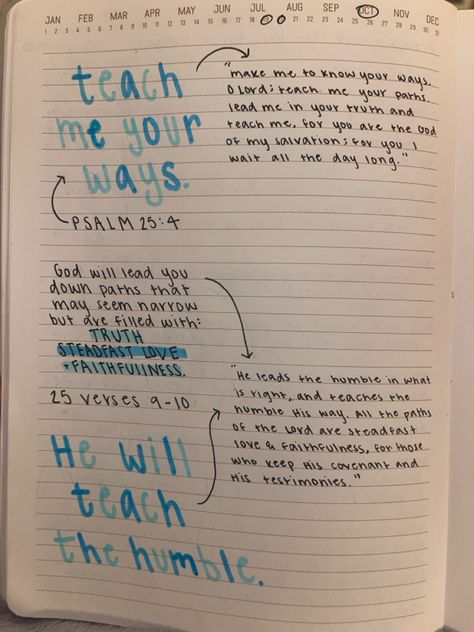 JAN FEB MAR APR MAY JUN JUL AUG SEP OCT NOV DEC
1 2 3 4 5 6 7 8 9 10 11 12 13 14 15 16 17 18 19 20 21 22 23 24 25 26 27 28 29 30 31
teach
me your
ways.
PSALM 25:4
"make me to know your ways,
O Lord; teach me your paths.
lead me in your truth and
teach me, for you are the God
of my salvation; for you I
wait all the day long."
God will lead you
down paths that
may seem narrow
but are filled with:
TRUTH
STEADFAST LOVE
+ FAITHFULLNESS.
25 verses 9-10
"He leads the humble in what
is right, and teaches the
humble His way. All the paths
of the Lord are steadfast
love & faithfulness, for those
who keep His covenant and
His testimonies."
He will
teach
the humble.